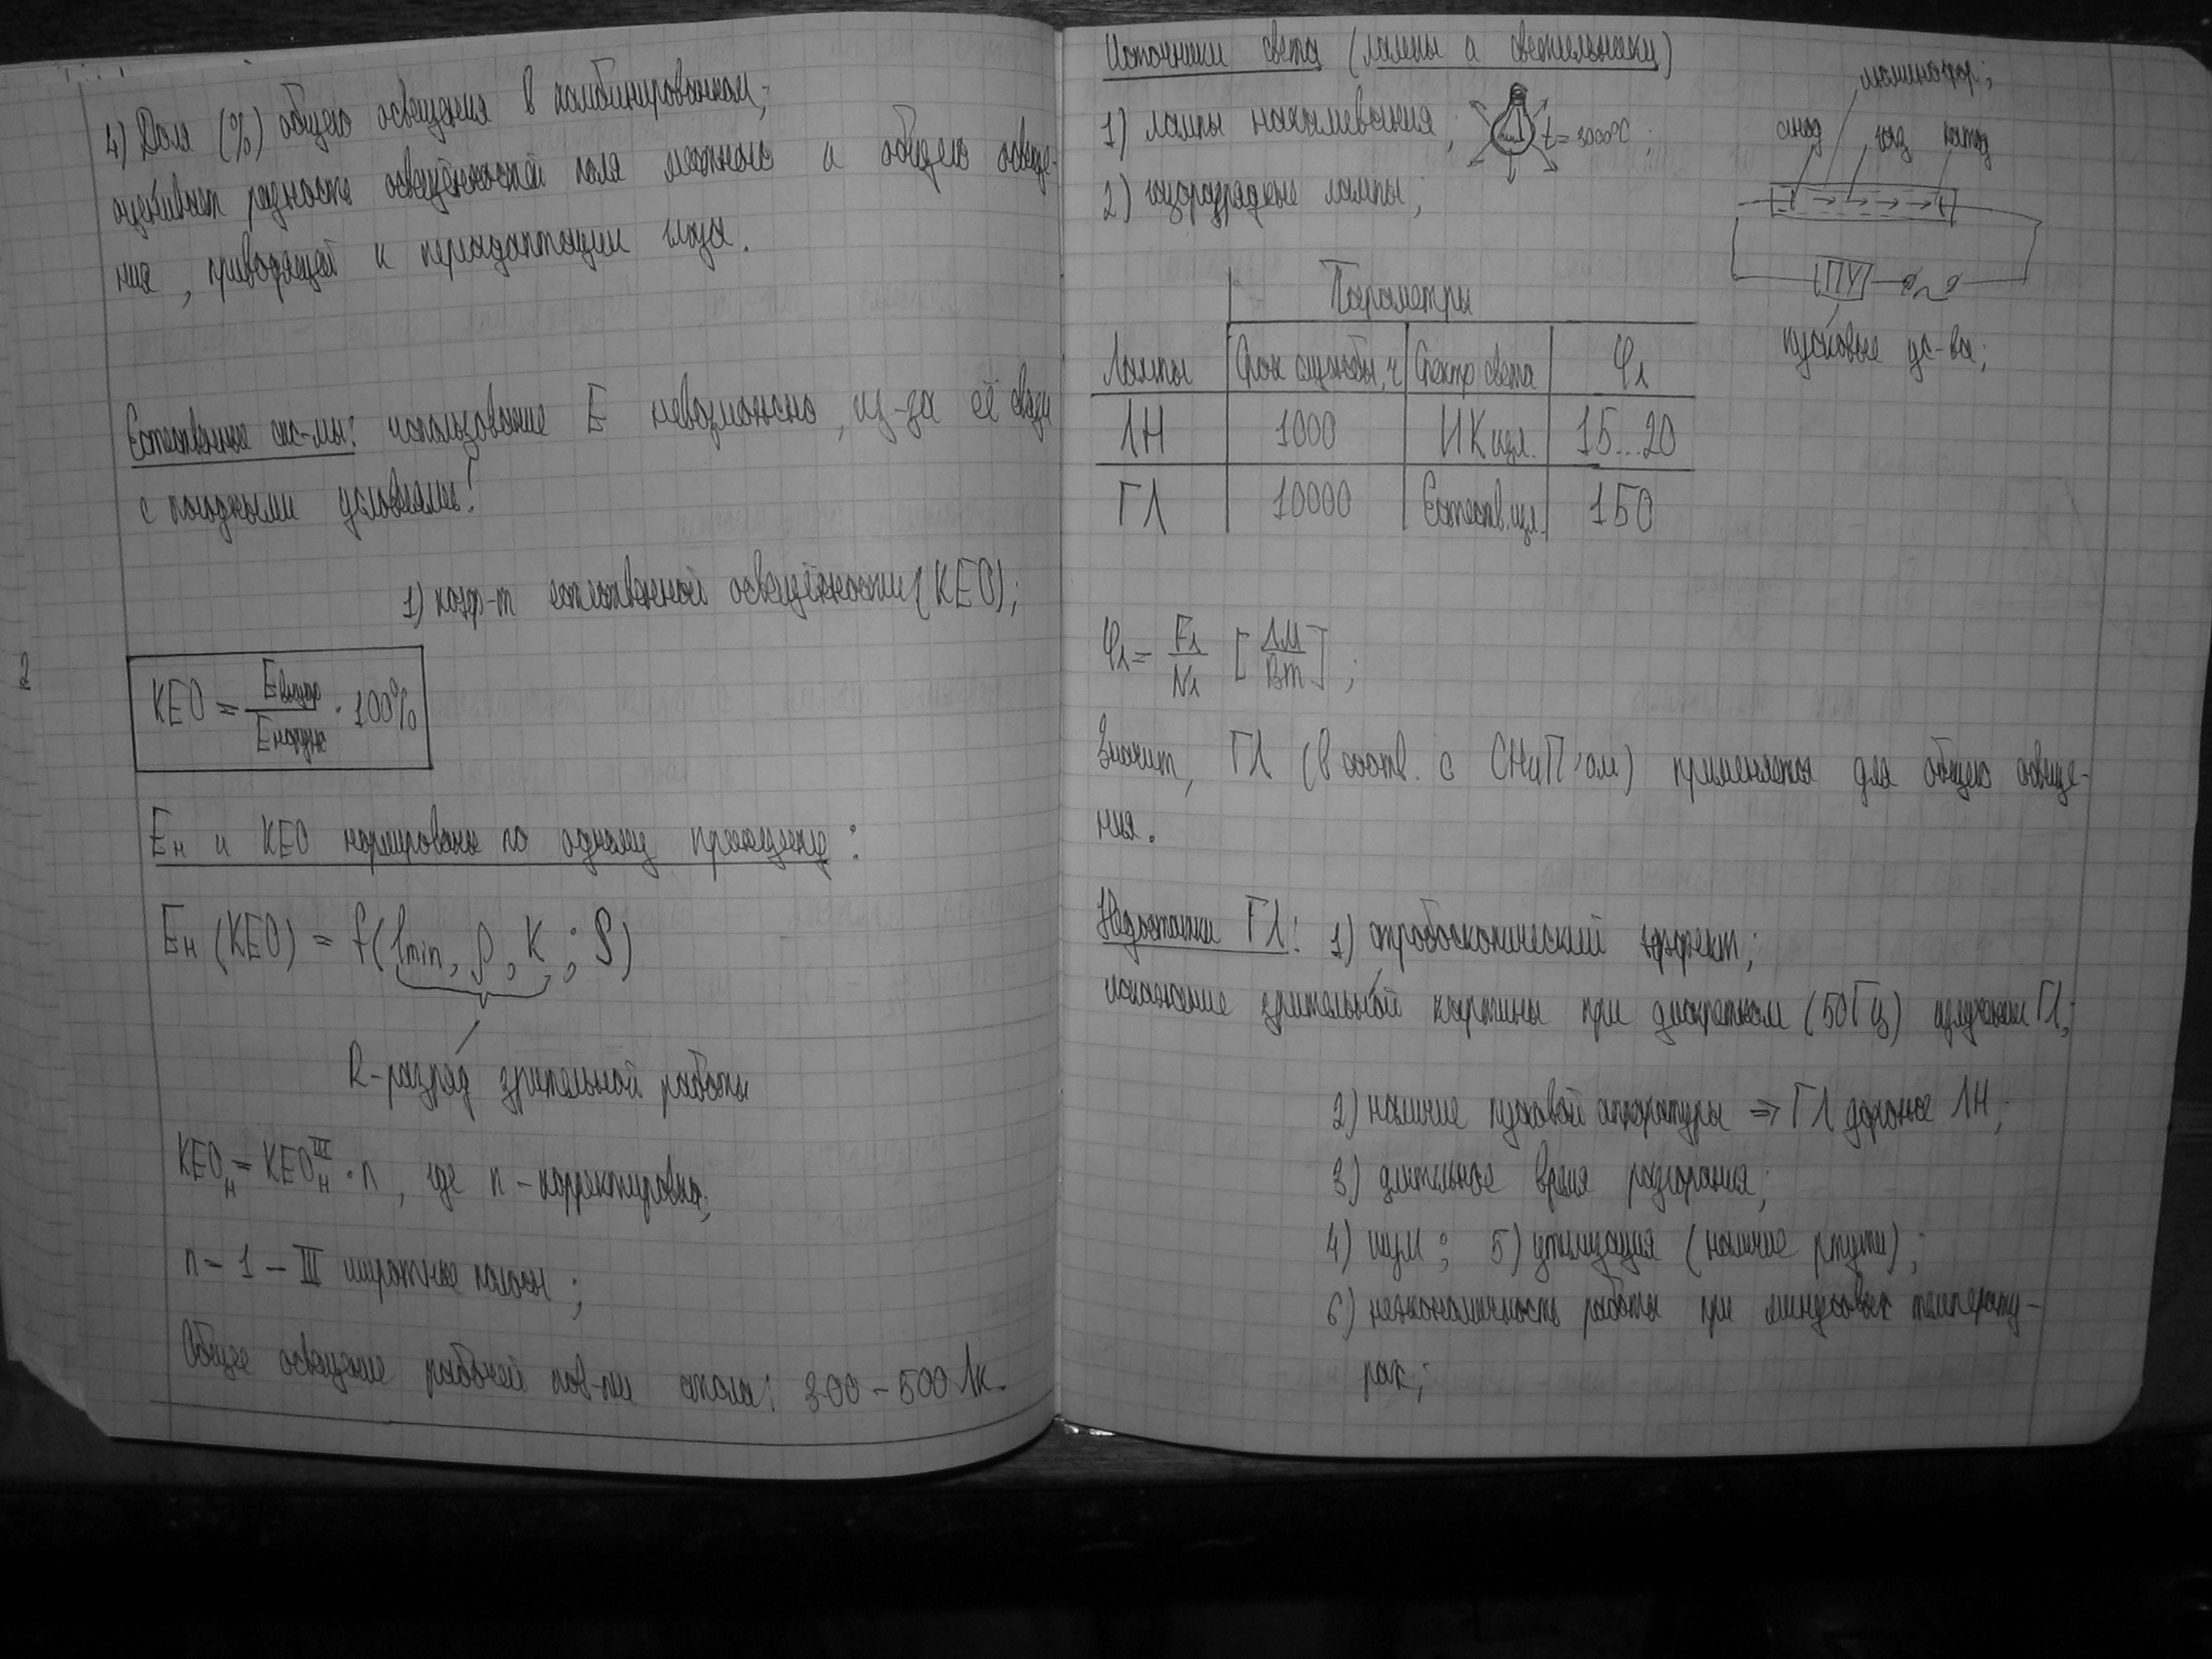 4) Доля (%) общего освещения в комбинированном;
оценивает разность освещённостей поля местного и общего освеще-
ния, приводящей к переадаптации глаза.
Естественные сис-мы: использование E невозможно, из-за её связи
с погодными условиями!
1) коэф-т естественной освещённости (КЕО);
КЕО = Eвнутр / Eнаружн · 100%
Eн и КЕО нормированы по одному принципу:
Eн (КЕО) = f(lmin, ρ, K ; S)
R-разряд зрительной работы
КЕОн = КЕОн^III · n, где n - корректировка;
n - 1 - III широтные полосы;
Общее освещение рабочей пов-ти стола: 300 - 500 Лк.
Источники света (лампы и светильники)
1) лампы накаливания; t = 3000°C;
2) газоразрядные лампы;
люминофор;
анод газ катод
ПУ
пусковые ус-ва;
Параметры
Лампы Срок службы, ч Спектр света φл
ЛН 1000 ИК изл. 15...20
ГЛ 10000 Естеств. изл. 150
φл = Fл / Nл [Лм / Вт];
Значит, ГЛ (в соотв. с СНиП'ом) применяется для общего освеще-
ния.
Недостатки ГЛ: 1) стробоскопический эффект;
искажение зрительной картины при дискретном (50Гц) излучении ГЛ;
2) наличие пусковой аппаратуры ⇒ ГЛ дороже ЛН;
3) длительное время разгорания;
4) шум; 5) утилизация (наличие ртути);
6) неэкономичность работы при минусовых температу-
рах;